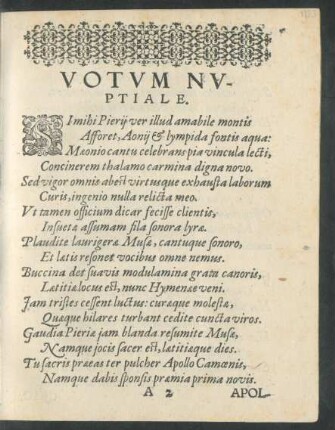 VOTVM NV-
PTIALE.
SI mihi Pierij ver illud amabile montis
Afforet, Aonij & lympida fontis aqua:
Mæonio cantu celebrans pia vincula lecti,
Concinerem thalamo carmina digna novo.
Sed vigor omnis abest virtusque exhausta laborum
Curis, ingenio nulla relicta meo.
Vt tamen officium dicar fecisse clientis,
Insueta assumam fila sonora lyræ.
Plaudite laurigeræ Musæ, cantuque sonoro,
Et lætis resonet vocibus omne nemus.
Buccina det suavis modulamina grata canoris,
Lætitiæ locus est, nunc Hymenæe veni.
Jam tristes cessent luctus: curæque molestæ,
Quæque hilares turbant cedite cuncta viros.
Gaudia Pieriæ jam blanda resumite Musæ,
Namque jocis sacer est, lætitiæque dies.
Tu sacris præeas ter pulcher Apollo Camænis,
Namque dabis sponsis præmia prima novis.
A 2 APOL-